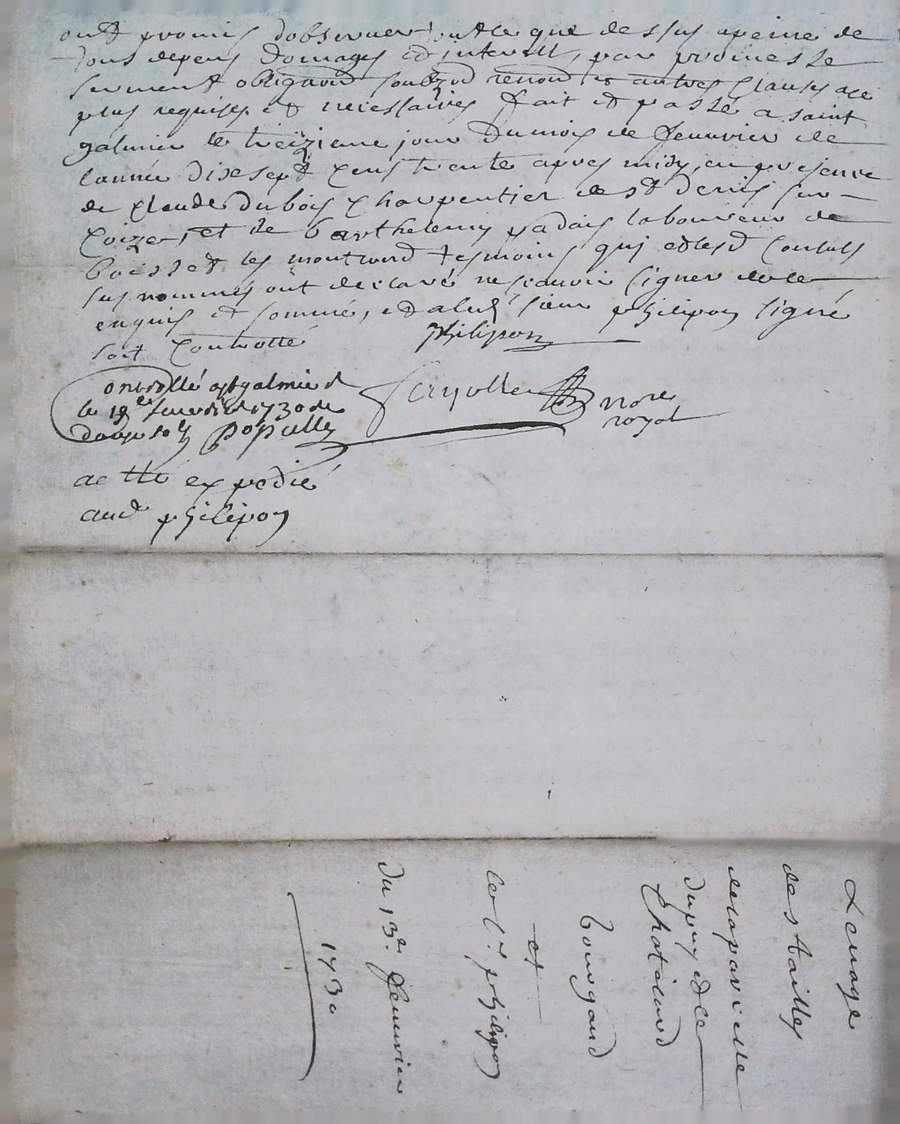 ont promis dobserver tout ce que dessus a peine de
tous depens domages et interest, par promesse
serment obligaon soubzon renon et autres clauses
plus requises et necessaires fait et passé a saint
galmier le treizieme jour du mois de Jenuvier de
lannée dixsept cens trente apres midy, en presence
de Claude dubois Charpentier de st denis sur
Coize, et de barthelemy laboureur de
boisset les montrond tesmoins qui et lesd Consuls
sus nommes ont declaré ne scavoir signer de ce
enquis et sommé, et aled sieur philipon signé
soit Controllé philipon
Controllé a st galmier
le 19e Jenuvier 1730
nore
royal
de tté expedié
aud philipon
Levage
des tailles
de la par
du puy et de
Chatelard
bourgand
et
le sr philipon
du 13e Jenuvier
1730